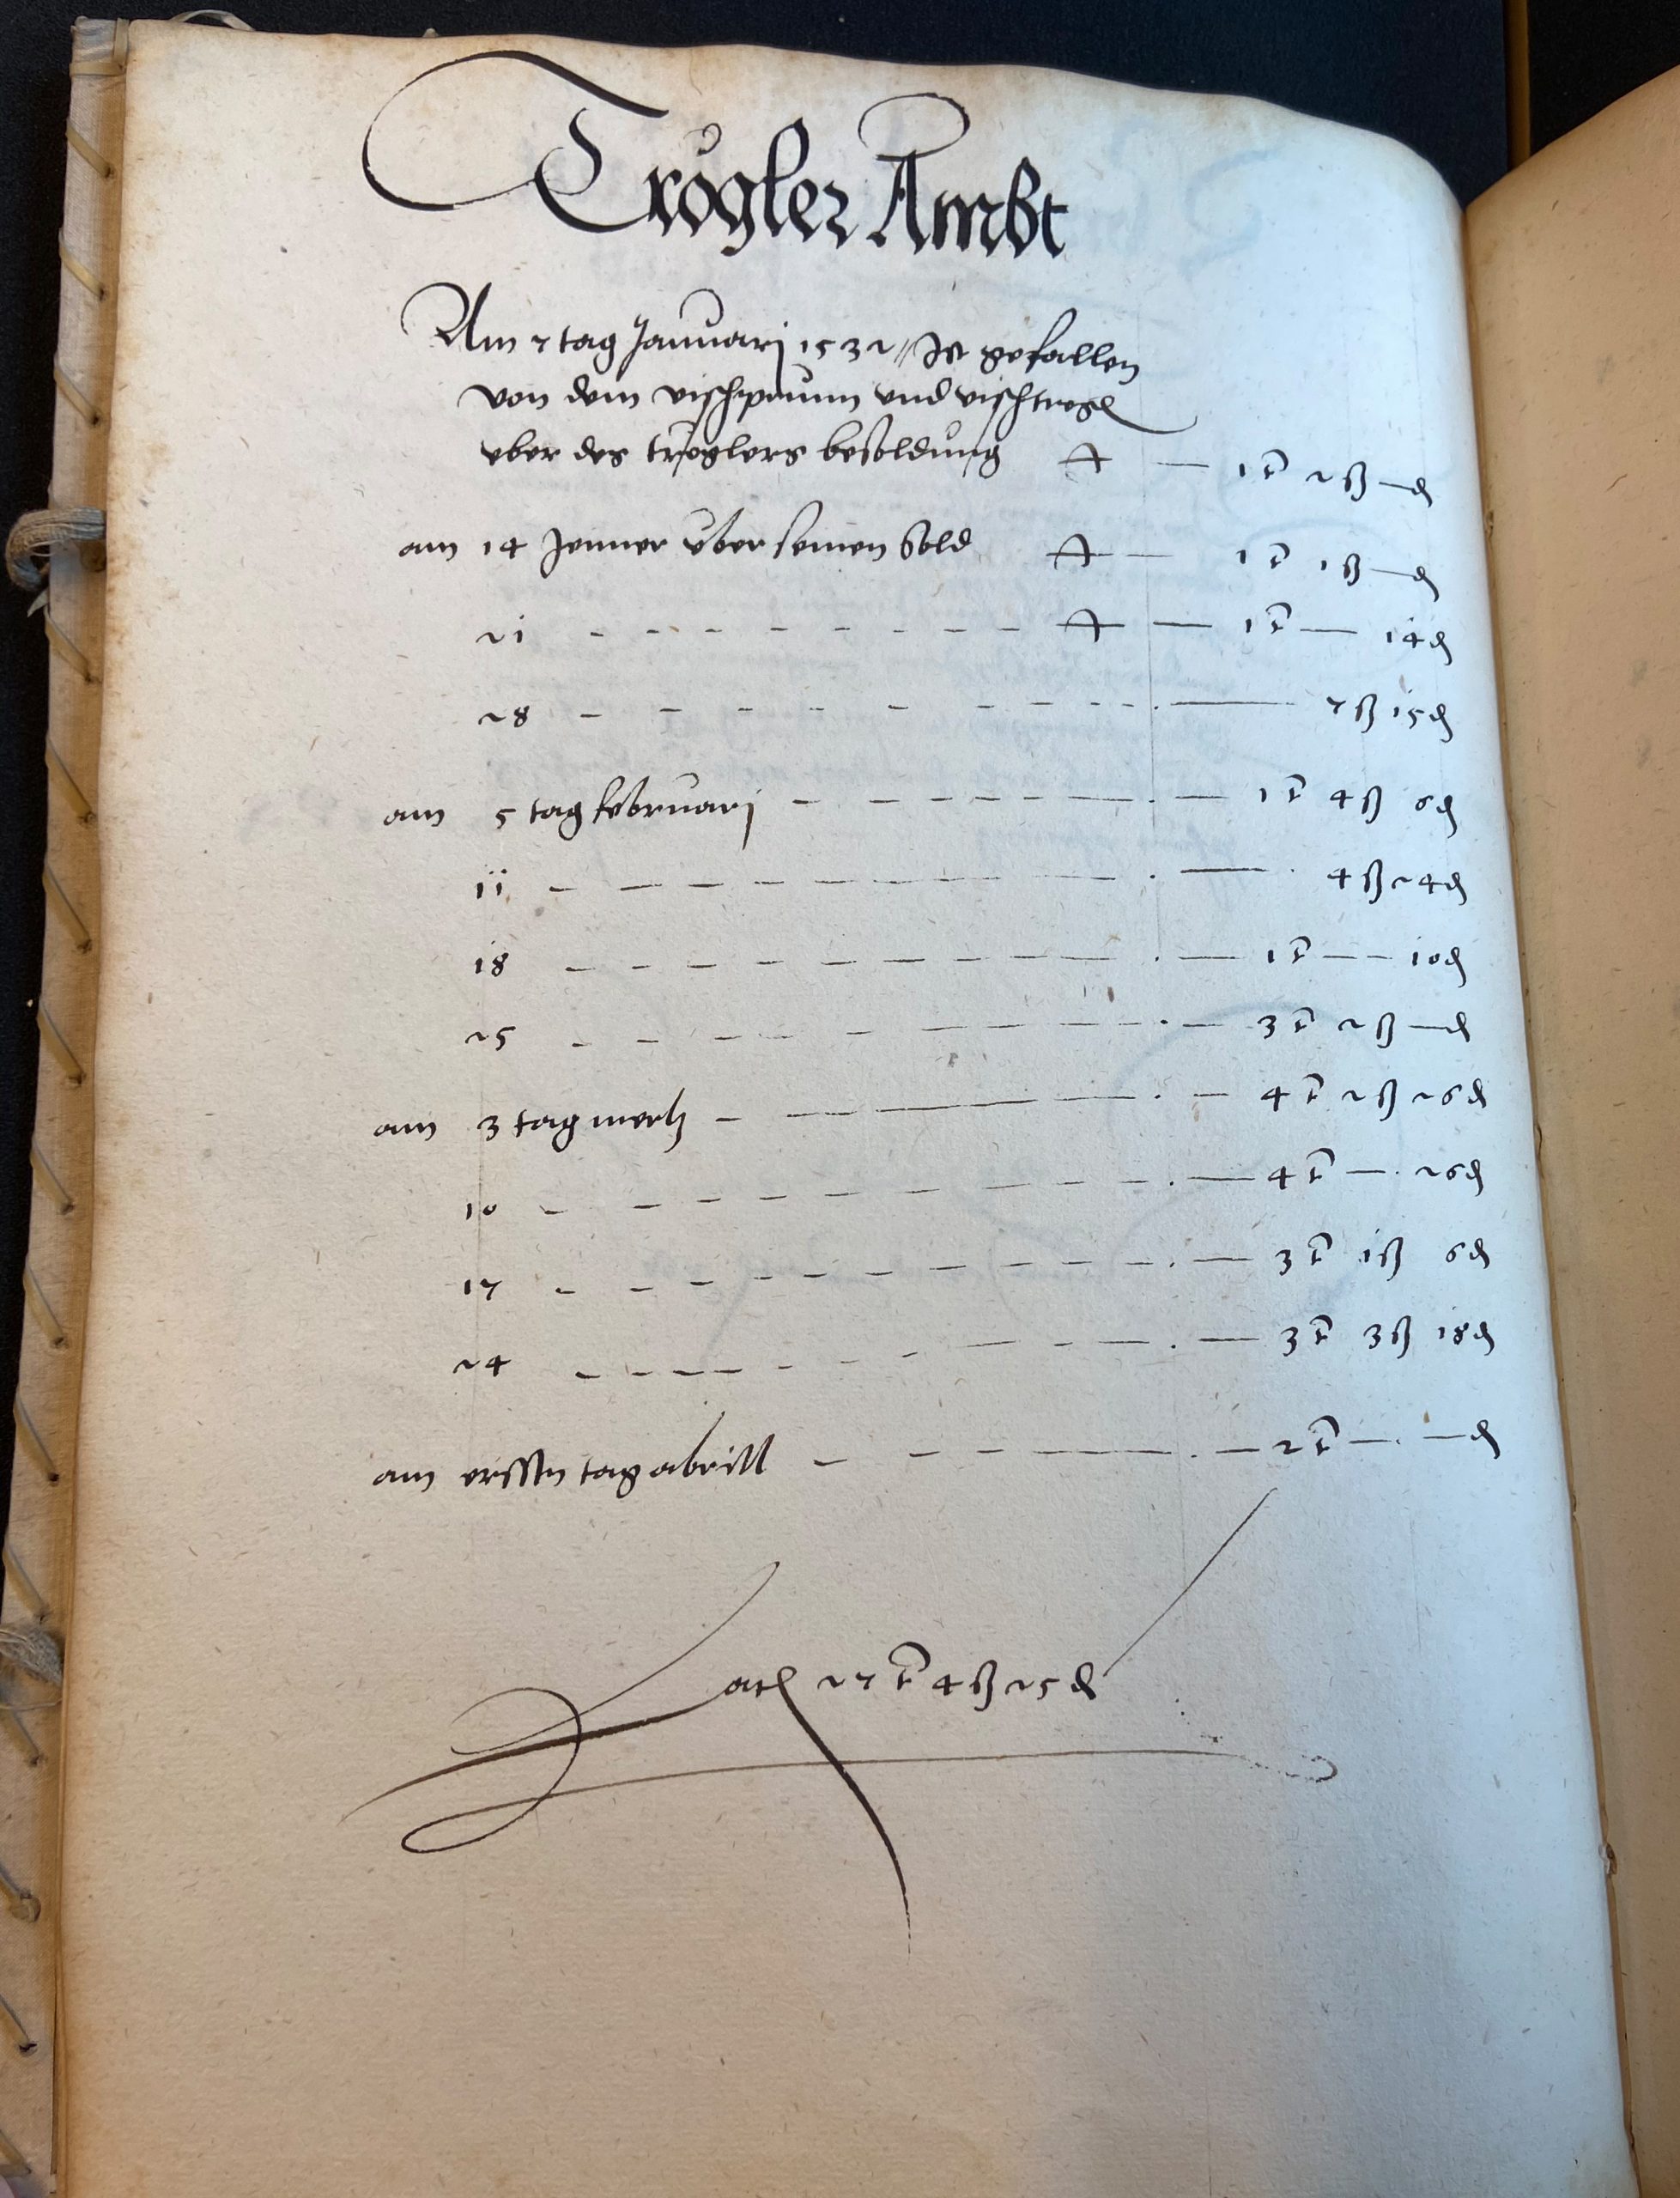 Trögler Ambt
Am 7 tag Januarj 1532 // Ist gefallen
von dem vischprunn vnd vischtrogl
vber des tröglers besoldung — 1 t 2 ß — d
am 14 Jenner vber seinen sold — 1 t 1 ß — d
21 — 1 t — 14 d
28 — 7 ß 15 d
am 5 tag februarj — 1 t 4 ß 6 d
11 — 4 ß 24 d
18 — 1 t — 10 d
25 — 3 t 2 ß — d
am 3 tag mertz — 4 t 2 ß 26 d
10 — 4 t — 26 d
17 — 3 t 1 ß 6 d
24 — 3 t 3 ß 18 d
am erssten tag abrill — 2 t — — d
27 t 4 ß 25 d